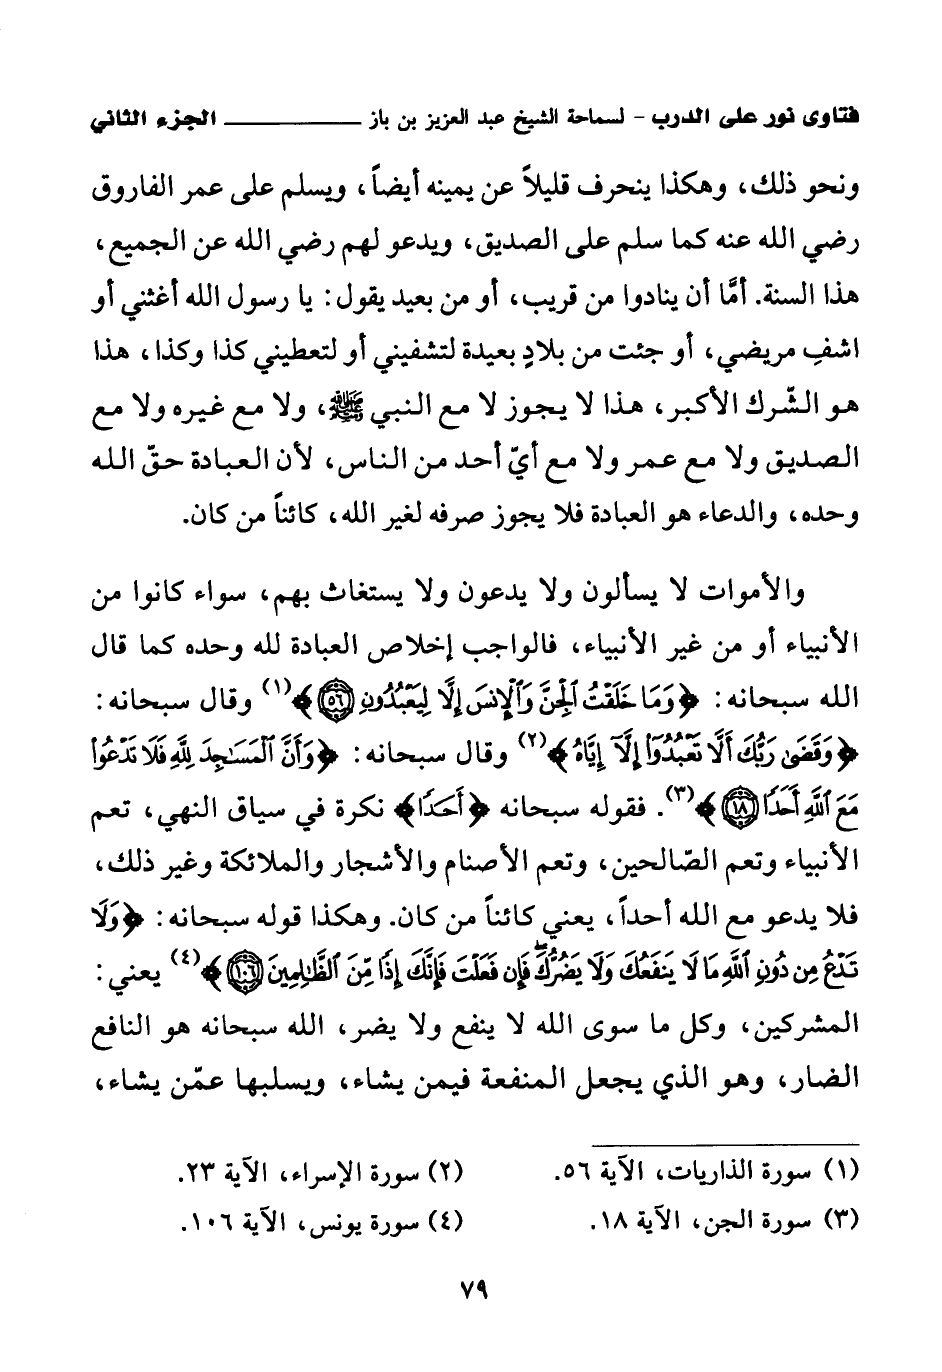 فتاوى نور على الدرب - لسماحة الشيخ عبد العزيز بن باز ـــــــــــ الجزء الثاني
ونحو ذلك، وهكذا ينحرف قليلاً عن يمينه أيضاً، ويسلم على عمر الفاروق
رضي الله عنه كما سلم على الصديق، ويدعو لهم رضي الله عن الجميع،
هذا السنة. أمَّا أن ينادوا من قريب، أو من بعيد يقول: يا رسول الله أغثني أو
اشفِ مريضي، أو جئت من بلادٍ بعيدة لتشفيني أو لتعطيني كذا وكذا، هذا
هو الشّرك الأكبر، هذا لا يجوز لا مع النبي ﷺ، ولا مع غيره ولا مع
الصديق ولا مع عمر ولا مع أيّ أحد من الناس، لأن العبادة حقّ الله
وحده، والدعاء هو العبادة فلا يجوز صرفه لغير الله، كائناً من كان.
والأموات لا يسألون ولا يدعون ولا يستغاث بهم، سواء كانوا من
الأنبياء أو من غير الأنبياء، فالواجب إخلاص العبادة لله وحده كما قال
الله سبحانه: ﴿وَمَا خَلَقْتُ ٱلْجِنَّ وَٱلْإِنسَ إِلَّا لِيَعْبُدُونِ ٥٦﴾(١) وقال سبحانه:
﴿وَقَضَىٰ رَبُّكَ أَلَّا تَعْبُدُوٓا۟ إِلَّآ إِيَّاهُ﴾(٢) وقال سبحانه: ﴿وَأَنَّ ٱلْمَسَٰجِدَ لِلَّهِ فَلَا تَدْعُوا۟
مَعَ ٱللَّهِ أَحَدًا ١٨﴾(٣). فقوله سبحانه ﴿أَحَدًا﴾ نكرة في سياق النهي، تعم
الأنبياء وتعم الصّالحين، وتعم الأصنام والأشجار والملائكة وغير ذلك،
فلا يدعو مع الله أحداً، يعني كائناً من كان. وهكذا قوله سبحانه: ﴿وَلَا
تَدْعُ مِن دُونِ ٱللَّهِ مَا لَا يَنفَعُكَ وَلَا يَضُرُّكَ ۖ فَإِن فَعَلْتَ فَإِنَّكَ إِذًا مِّنَ ٱلظَّٰلِمِينَ ١٠٦﴾(٤) يعني:
المشركين، وكل ما سوى الله لا ينفع ولا يضر، الله سبحانه هو النافع
الضار، وهو الذي يجعل المنفعة فيمن يشاء، ويسلبها عمّن يشاء،
(١) سورة الذاريات، الآية ٥٦. (٢) سورة الإسراء، الآية ٢٣.
(٣) سورة الجن، الآية ١٨. (٤) سورة يونس، الآية ١٠٦.
٧٩